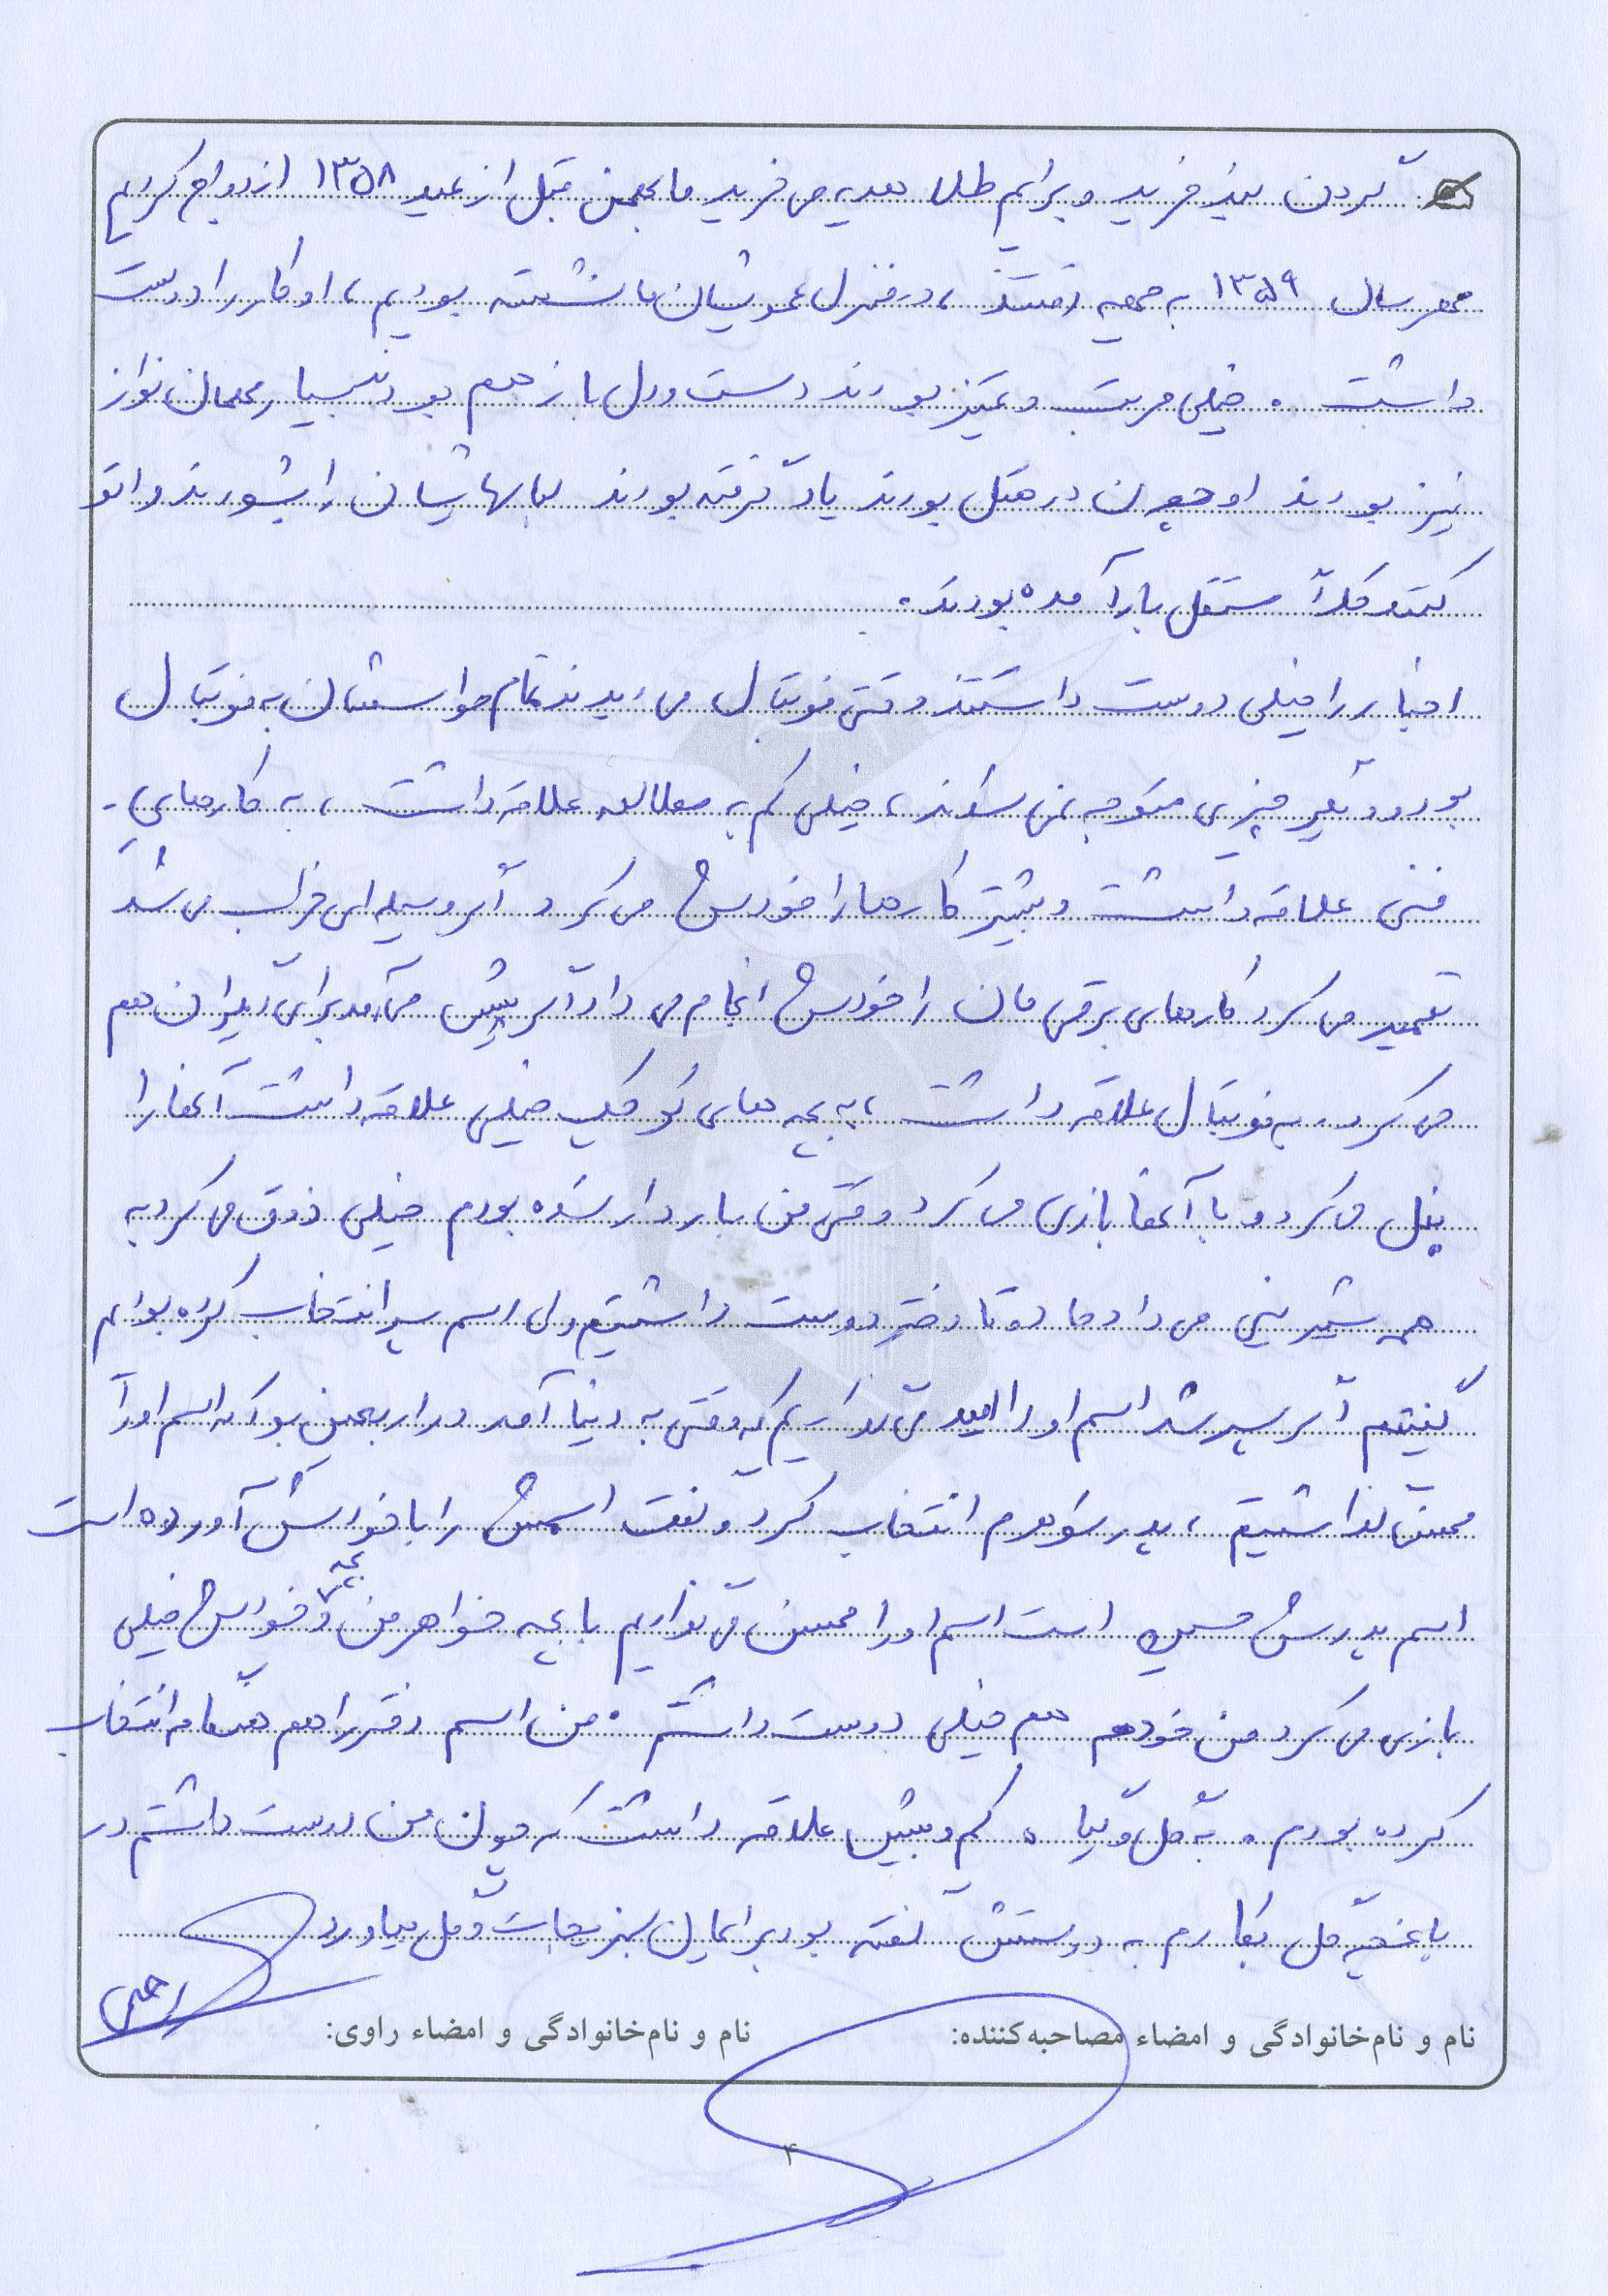 گردن بند خرید و برایم طلا هدیه می خرید ما بهمن قبل از عید ۱۳۵۸ ازدواج کردیم
مهر سال ۱۳۵۹ به جبهه رفتند، در منزل عمویشان ما نشسته بودیم، او کار را دوست
داشت. خیلی مرتب و تمیز بودند دست و دل باز هم بودند بسیار مهمان نواز
نیز بودند او چون در هتل بودند یاد گرفته بودند لباسهایشان را بشورند و اتو
کنند کلاً مستقل بار آمده بودند.
اخبار را خیلی دوست داشتند وقتی فوتبال می دیدند تمام حواسشان به فوتبال
بود و دیگر چیزی متوجه نمی شدند، خیلی کم به مطالعه علاقه داشت، به کارهای
فنی علاقه داشت و بیشتر کارها را خودش می کرد و اگر وسیله ای خراب می شد
تعمیر می کرد کارهای برقی مان را خودش انجام می داد اگر پیش می آمد برای دیگران هم
می کرد به فوتبال علاقه داشت، به بچه های کوچک خیلی علاقه داشت آنها را
بغل می کرد و با آنها بازی می کرد وقتی من باردار شده بودم خیلی ذوق می کرد به
همه شیرینی می داد ما دو تا دختر دوست داشتیم ولی اسم پسر انتخاب کرده بودیم
گفتیم اگر پسر شد اسم او را امید می گذاریم که وقتی به دنیا آمد در اربعین بود که اسم او را
محسن گذاشتیم، پدر شوهرم انتخاب کرد و گفت اسمش را با خودش آورده است
اسم پدرش حسین است اسم او را محسن می گذاریم با بچه خواهر من و بچه خواهرش خیلی
بازی می کرد من خودم هم خیلی دوست داشتم. من اسم دختر را هم هنگامه انتخاب
کرده بودم. به گل و گیاه کم و بیش علاقه داشت که چون من دوست داشتم در
باغچه گل بکارم به دوستش گفته بود برایمان سبزیجات و گل بیاورد
نام و نام‌خانوادگی و امضاء مصاحبه‌کننده: نام و نام‌خانوادگی و امضاء راوی:
۴